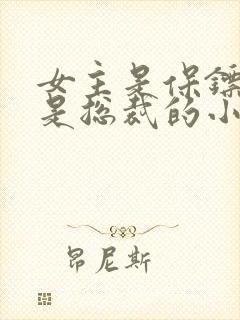 女主是保镖
是总裁的小
昂尼斯